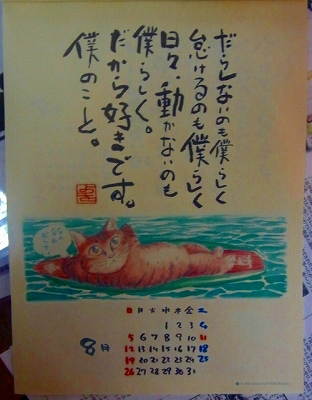 だらしないのも僕らしく
怠けるのも僕らしく
日々、動かないのも
僕らしく。
だから好きです。
僕のこと。
8月
日 月 火 水 木 金 土
1 2 3 4
5 6 7 8 9 10 11
12 13 14 15 16 17 18
19 20 21 22 23 24 25
26 27 28 29 30 31